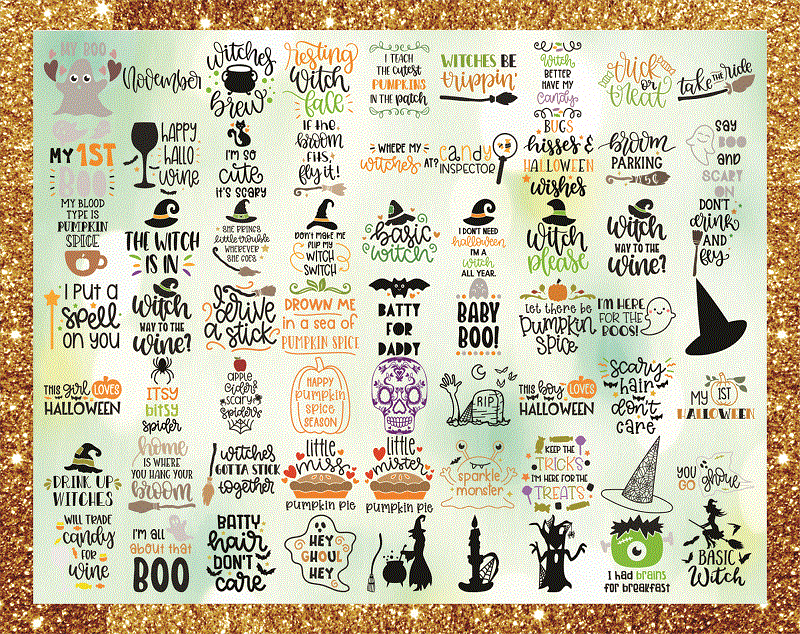 MY BOO
November
witches
brew
resting
witch
face
I TEACH
THE CUTEST
PUMPKINS
IN THE PATCH
WITCHES BE
trippin'
Witch
BETTER
HAVE MY
Candy
trick
or
treat
take THE ride
MY 1ST
BOO
HAPPY
HALLO
WINE
I'M SO
CUTE
IT'S SCARY
IF THE
BROOM
FITS,
fly it!
WHERE MY
witches AT?
candy
INSPECTOR
BUGS
kisses &
HALLOWEEN
wishes
broom
PARKING
5¢
SAY
BOO
AND
SCARY
ON
MY BLOOD
TYPE IS
PUMPKIN
SPICE
THE WITCH
IS IN
SHE BRINGS
little trouble
WHEREVER
SHE GOES
DON'T MAKE ME
FLIP MY
WITCH
SWITCH
basic
witch
I DON'T NEED
halloween
I'M A
witch
ALL YEAR.
witch
please
witch
WAY TO THE
wine?
DON'T
drink
AND
fly
I PUT A
spell
ON YOU
witch
WAY TO THE
wine?
drive
A STICK
DROWN ME
in a sea of
PUMPKIN SPICE
BATTY
FOR
DADDY
BABY
BOO!
let there be
pumpkin
spice
I'M HERE
FOR THE
BOOS!
THIS girl LOVES
HALLOWEEN
ITSY
bitsy
spider
apple
ciders
scary
spiders
HAPPY
pumpkin
spice
SEASON
RIP
THIS boy LOVES
HALLOWEEN
scary
hair
don't
CARE
MY 1ST
HALLOWEEN
DRINK UP
WITCHES
home
IS WHERE
YOU HANG YOUR
broom
witches
GOTTA STICK
together
little
miss
pumpkin pie
little
mister
pumpkin pie
sparkle
monster
KEEP THE
TRICKS
I'M HERE FOR THE
TREATS
YOU
GO ghoul
WILL TRADE
candy
FOR
wine
I'M ALL
about that
BOO
BATTY
hair
DON'T
care
HEY
GHOUL
HEY
I had brains
for breakfast
BASIC
Witch